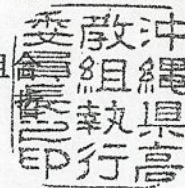 沖縄県高
教組執行
委員長印